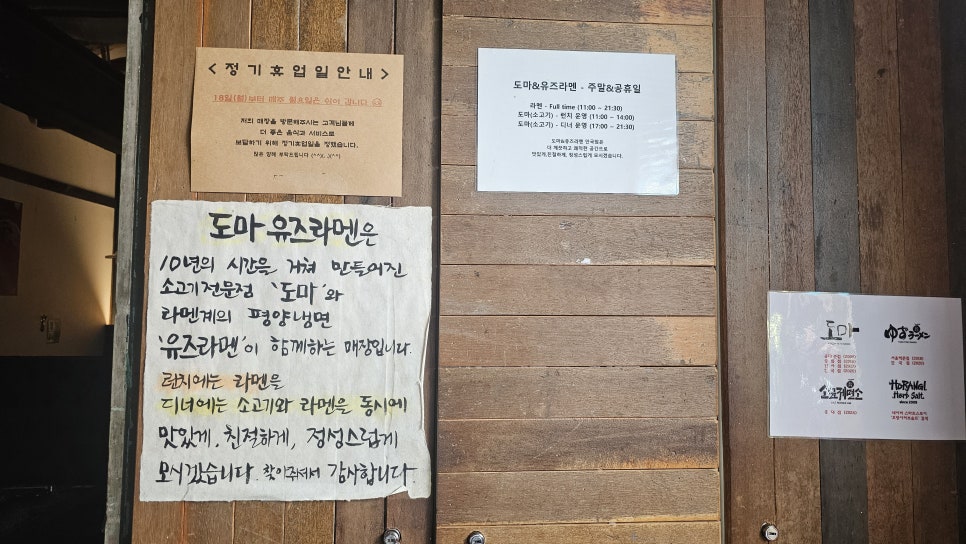 < 정기휴업일안내 >
18일(월)부터 매주 월요일은 쉬어 갑니다
저희 매장을 방문해주시는 고객님들께
더 좋은 음식과 서비스로
보답하기 위해 정기휴업일을 정했습니다.
많은 양해 부탁드립니다
도마&유즈라멘 - 주말&공휴일
라멘 - Full time (11:00 ~ 21:30)
도마(소고기) - 런치 운영 (11:00 ~ 14:00)
도마(소고기) - 디너 운영 (17:00 ~ 21:30)
도마&유즈라멘 안국점은
더 깨끗하고 쾌적한 공간으로
맛있게,친절하게, 정성스럽게 모시겠습니다.
도마 유즈라멘은
10년의 시간을 거쳐 만들어진
소고기전문점 '도마'와
라멘계의 평양냉면
'유즈라멘'이 함께하는 매장입니다.
런치에는 라멘을
디너에는 소고기와 라멘을 동시에
맛있게, 친절하게, 정성스럽게
모시겠습니다. 찾아주셔서 감사합니다.
도마
ゆずラーメン
HORANGI
Herb Salt.